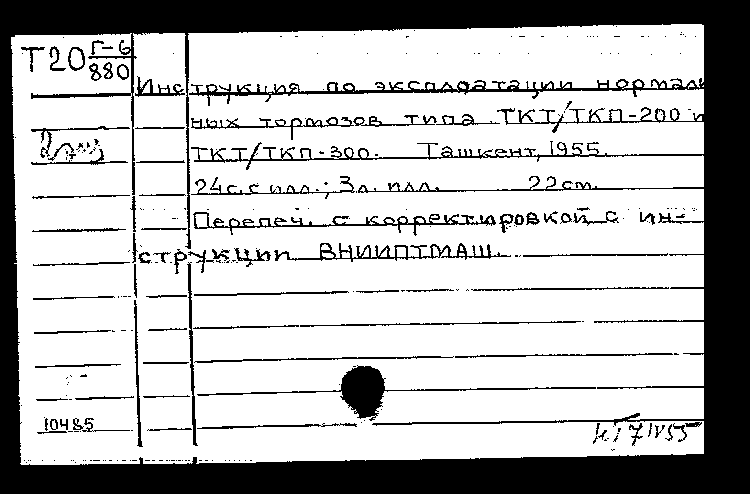 Т20 Г-6
880
Инструкция по эксплоатации нормаль
ных тормозов типа ТКТ/ТКП-200 и
ТКТ/ТКП-300. Ташкент, 1955.
24с. с илл.; 3л. илл. 22см.
Перепеч. с корректировкой с ин-
струкции ВНИИПТМАШ.
10485